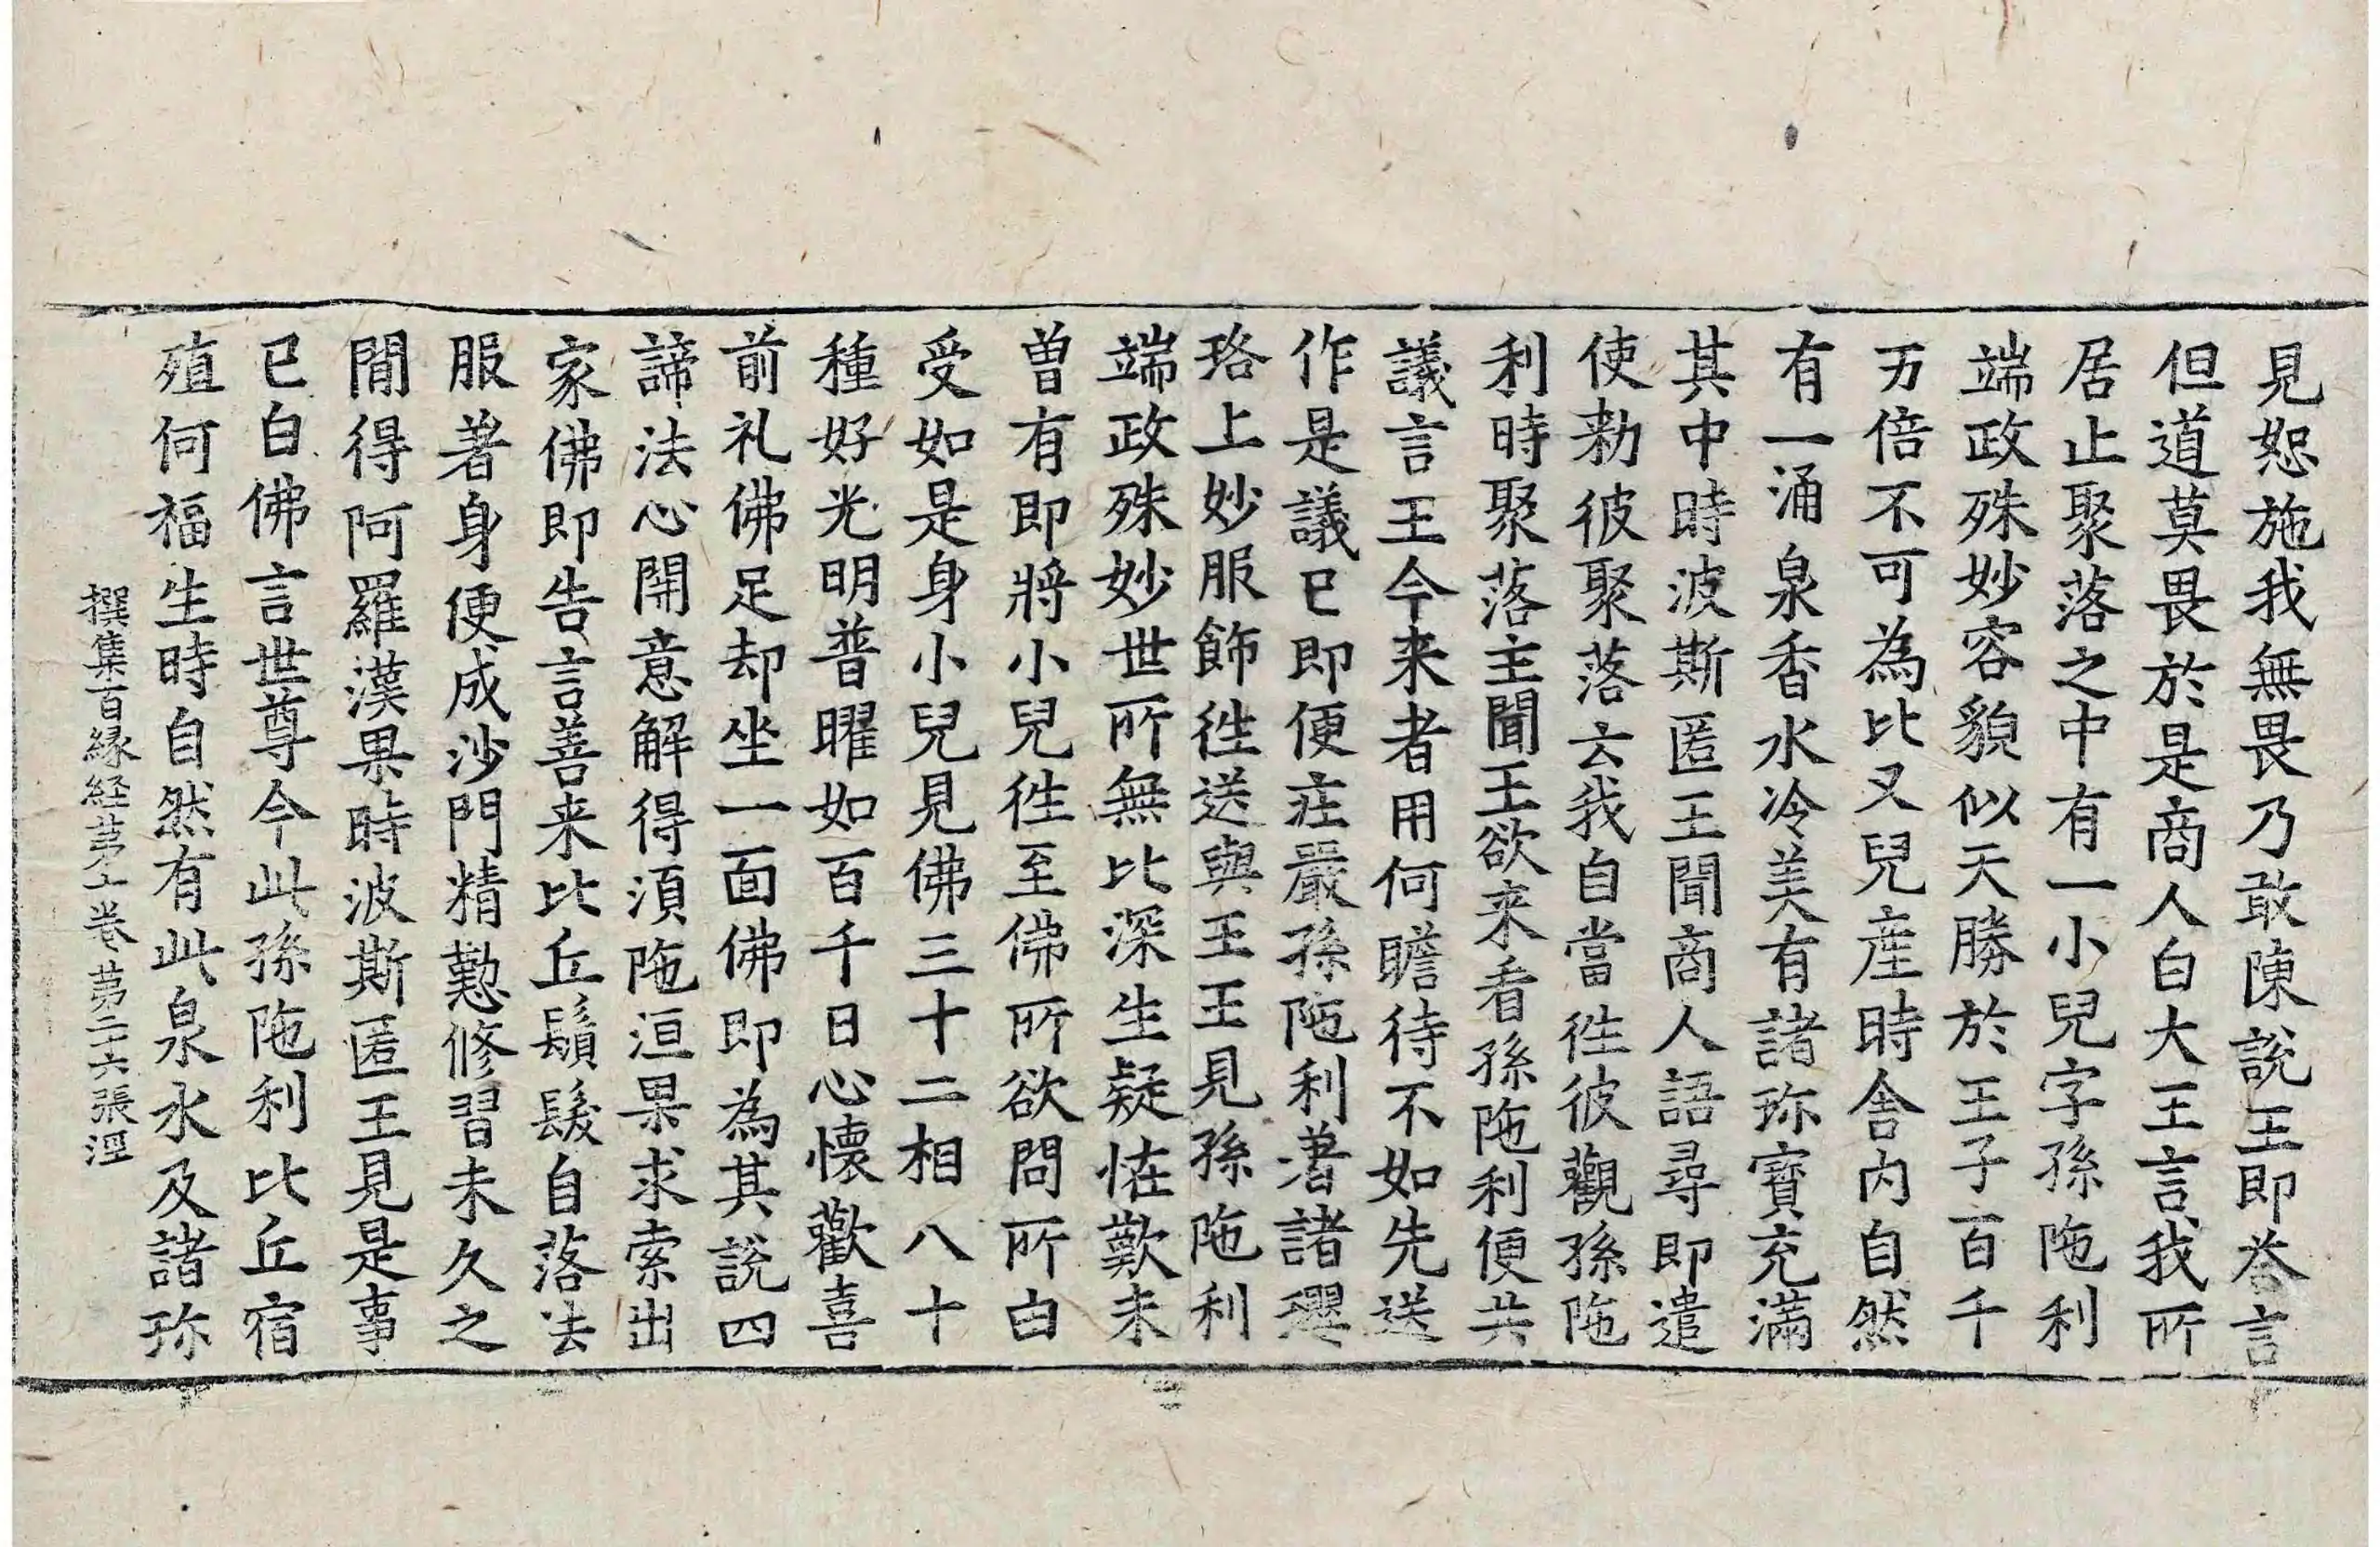 見恕施我無畏乃敢陳說王即荅言
但道莫畏於是商人白大王言我所
居止聚落之中有一小兒字孫陁利
端政殊妙容貌似天勝於王子百千
万倍不可為比又兒產時舍內自然
有一涌泉香水冷美有諸珎寶充滿
其中時波斯匿王聞商人語尋即遣
使勑彼聚落云我自當徃彼觀孫陁
利時聚落主聞王欲来看孫陁利便共
議言王今来者用何瞻待不如先送
作是議已即便庄嚴孫陁利著諸瓔
珞上妙服飾徃送與王王見孫陁利
端政殊妙世所無比深生疑恠歎未
曽有即將小兒徃至佛所欲問所白
受如是身小兒見佛三十二相八十
種好光明普曜如百千日心懷歡喜
前礼佛足却坐一面佛即為其說四
諦法心開意解得湏陁洹果求索出
家佛即告言善来比丘鬚髮自落法
服著身便成沙門精懃修習未久之
間得阿羅漢果時波斯匿王見是事
已白佛言世尊今此孫陁利比丘宿
殖何福生時自然有此泉水及諸珎
撰集百縁経苐卷苐二六張